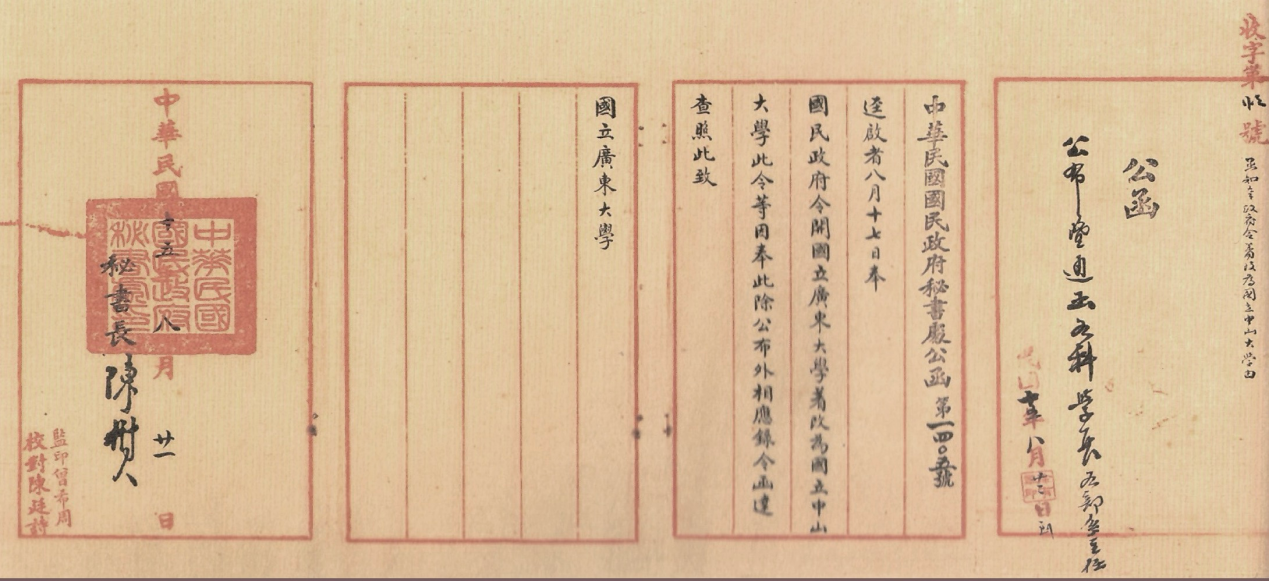 收字第 號
公函
公布並通函各科學長各部處主任
民國十五年八月廿三日到
中華民國國民政府秘書處公函 第一四〇五號
逕啟者八月十七日奉
國民政府令開國立廣東大學著改為國立中山
大學此令等因奉此除公布外相應錄令函達
查照此致
國立廣東大學
中華民國十五年八月廿一日
中華民國國民政府秘書處印
秘書長陳樹人
監印曾希周
校對陳廷詩